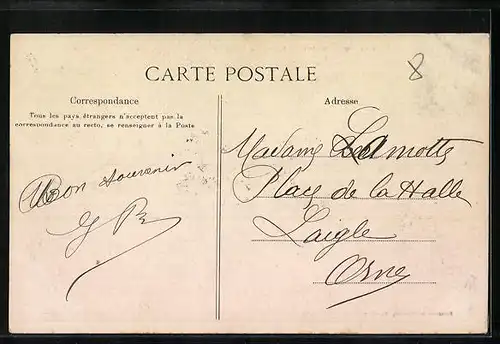 CARTE POSTALE
8
Correspondance
Tous les pays étrangers n'acceptent pas la
correspondance au recto, se renseigner à la Poste
Bon souvenir
Adresse
Madame Lamotte
Place de la Halle
Laigle
Orne